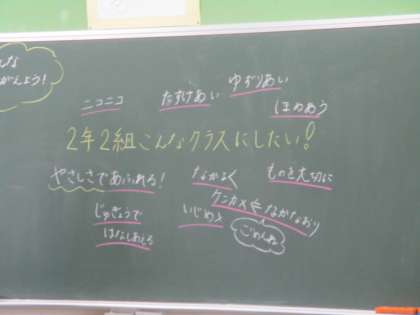 んな
がんよう！
ニコニコ
たすけあい
ゆずりあい
ほめあう
2年2組こんなクラスにしたい！
やさしさであふれる！
なかよく
ものを大切に
じゅぎょうで
はなしあえる
いじめ×
ケンカ×←なかなおり
ごめんね